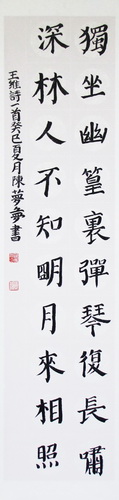 獨坐幽篁裏彈琴復長嘯
深林人不知明月來相照
王維詩一首癸巳夏月陳夢書